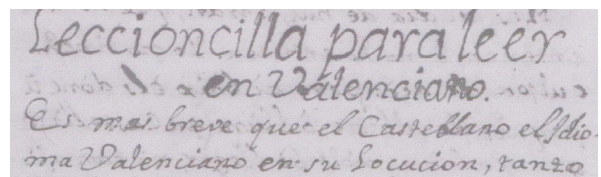 Leccioncilla para leer
en Valenciano.
Es mas breve que el Castellano el Idio-
ma Valenciano en su Locucion, tanto